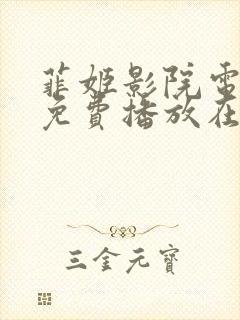 菲姬影院電
免費播放在
三金元寶